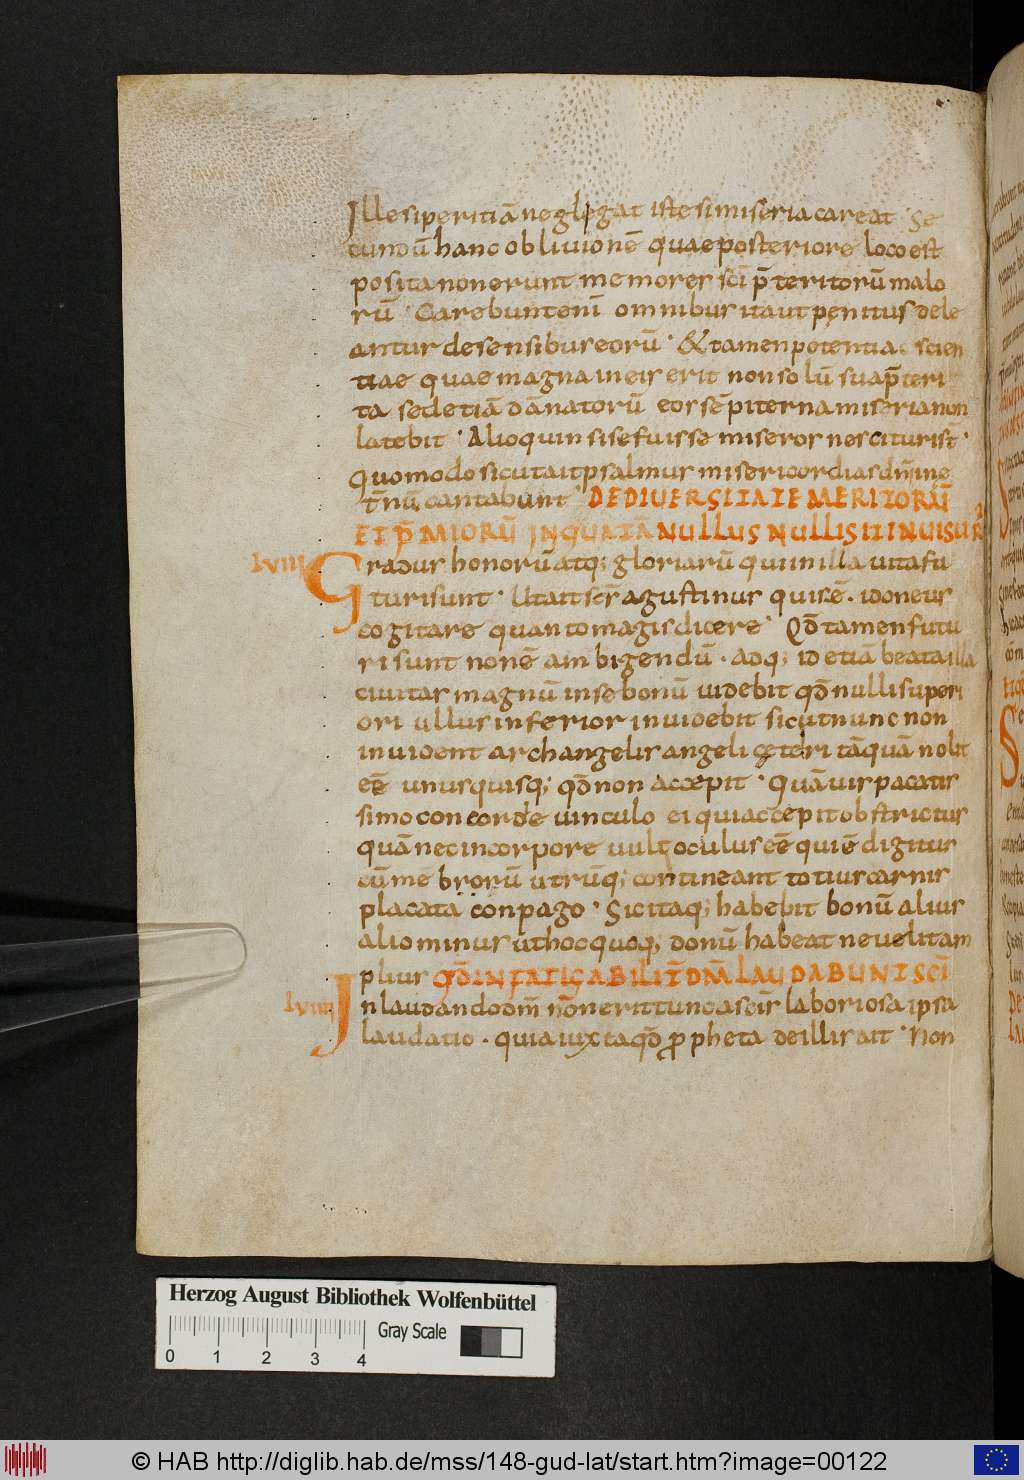 Ille si peritiā neglegat iste si miseria careat · Se
cundū hanc oblivionē quae posteriore loco est
posita non erunt memores sc̄i p̄teritorū malo
rū · Carebunt enī omnibus ita ut penitus dele
antur de sensibus eorū · & tamen potentia scien
tiae quae magna in eis erit non solū sua p̄teri
ta sed etiā dānatorū eos sēpiterna miseria non
latebit · Alioquin si se fuisse miseros nescituri st̄ ·
quomodo sicut ait psalmus misericordias dn̄i in e
t̄nū cantabunt · DE DIVERSITATE MERITORŪ
ET P̄MIORŪ IN QUA TĀ NULLUS NULLIS II INVISUR
lviii Gradus honorū atq; gloriarū qui in illa vita fu
turi sunt · Ut ait sc̄s agustinus quis ē · idoneus
cogitare quanto magis dicere · Qđ tamen futu
ri sunt non ē ambigendū · adq; id etiā beata illa
civitas magnū in se bonū videbit qđ nulli superi
ori ullus inferior invidebit sicut nunc non
invident archangelis angeli ceteri tāquā nolit
eē unusquisq; qđ non accepit · Quāvis pacatis
simo concorde vinculo ei qui accepit obstrictus
quā nec in corpore vult oculus eē qui ē digitus
cū mēbrorū utrūq; contineant totius carnis
placata conpago · Sic itaq; habebit bonū alius
alio minus ut hoc quoq; donū habeat ne velit am
plius QĐ INFATIGABILIT̄ DM̄ LAUDABUNT SC̄I
lviiii In laudando dm̄ nōn erit tunc a sc̄is laboriosa ipsa
laudatio · quia iuxta qđ ꝓpheta de illis ait · Non
Herzog August Bibliothek Wolfenbüttel
Gray Scale
0 1 2 3 4
© HAB http://diglib.hab.de/mss/148-gud-lat/start.htm?image=00122